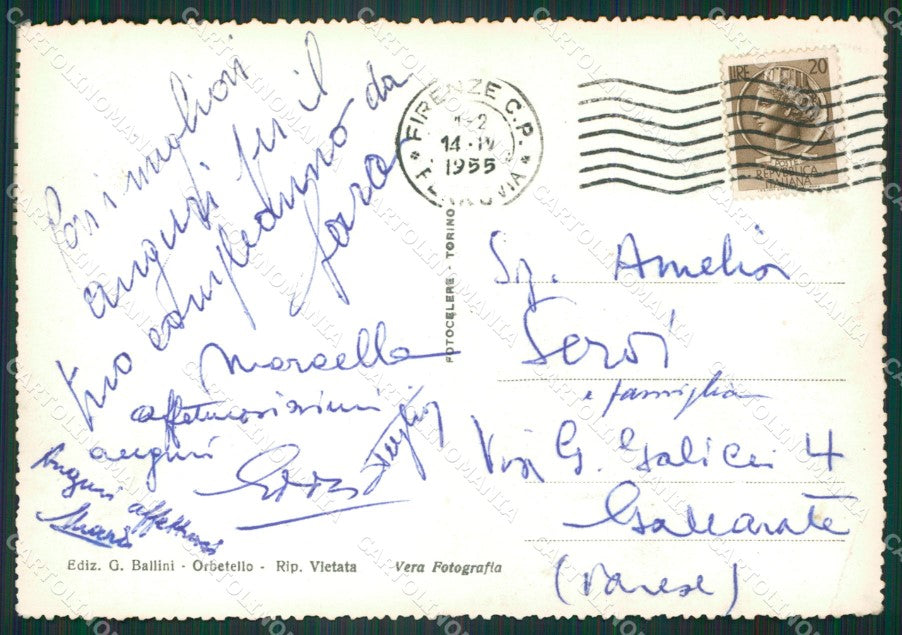 I più migliori
auguri per il
tuo compleanno da
Marcella
affettuosissimi
auguri
Auguri affettuosi
Ediz. G. Ballini - Orbetello - Rip. Vietata Vera Fotografia
FOTOCELERE - TORINO
FIRENZE C.P.
1-2
14·IV
1955
FERROVIA
LIRE 20
POSTE
REPVBBLICA
ITALIANA
Sig. Amelia
Servi
e famiglia
Via G. Galilei 4
Gallarate
(Varese)
CARTOLINOMANIA